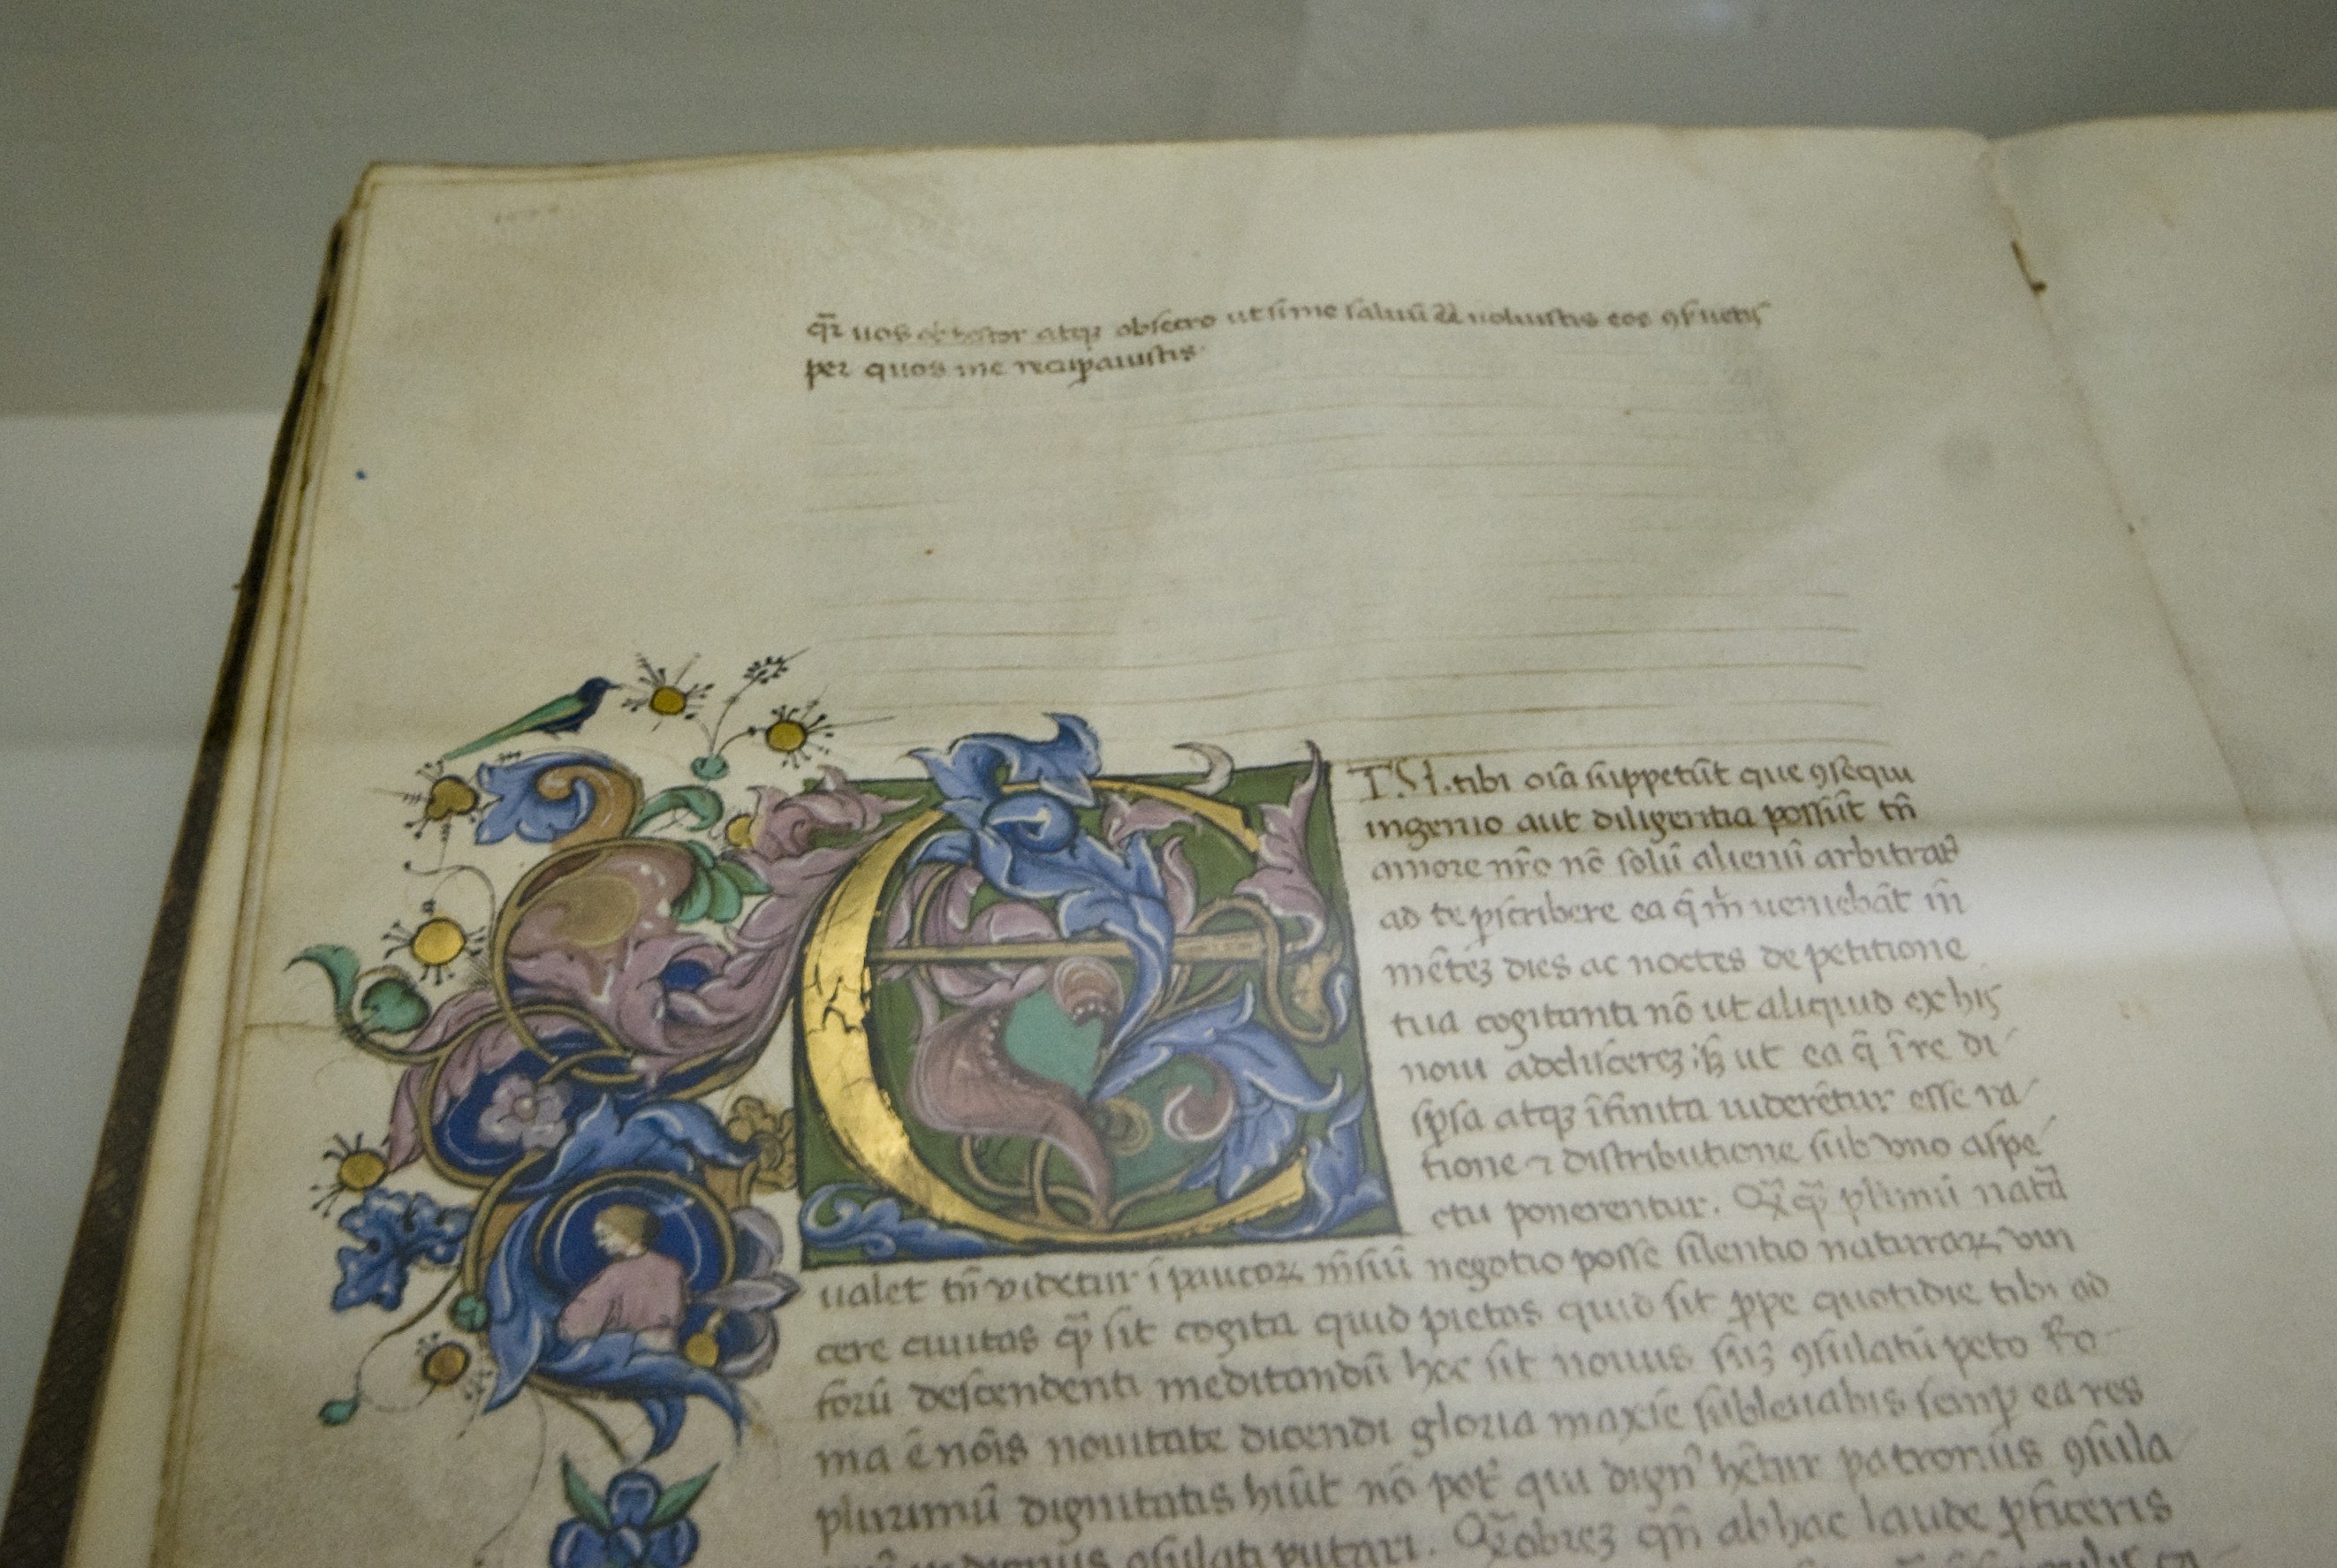 qr̄ uos obtestor atqꝫ obsecro ut si me saluū ēē uoluistis eos ꝯseruetis
per quos me recuꝑauistis
E TSI. tibi oīa suppetūt que ꝯsequi
ingenio aut diligentia possūt tn̄
amore nr̄o nō solū alienū arbitrat᷑
ad te ꝑscribere ea q̄ m̄ ueniebāt in
mētē dies ac noctes de petitione
tua cogitanti nō ut aliquid ex his
noui addisceres ; sꝫ ut ea q̄ ī re di
sꝑsa atqꝫ īfinita uiderētur esse ra
tione ⁊ distributione sub vno aspe
ctu ponerentur. Qq̄ꝫ plimū natā
ualet tn̄ videtur ī paucoꝝ mēsiū negotio posse silentio naturaꝫ vin
cere ciuitas q̄ sit cogita quid petas quid sit ꝓpe quotidie tibi ad
forū descendenti meditandū hoc sit nouus suꝫ ꝯsulatū peto Ro
ma ē nōis nouitate dicendi gloria maxīe subleuabis semꝑ ea res
plurimū dignitatis hūit nō pōt qui dignꝰ hētur patronus ꝯsula
indignus ꝯsulatu putari. Qr̄obreꝫ qn̄ ab hac laude ꝓficeris